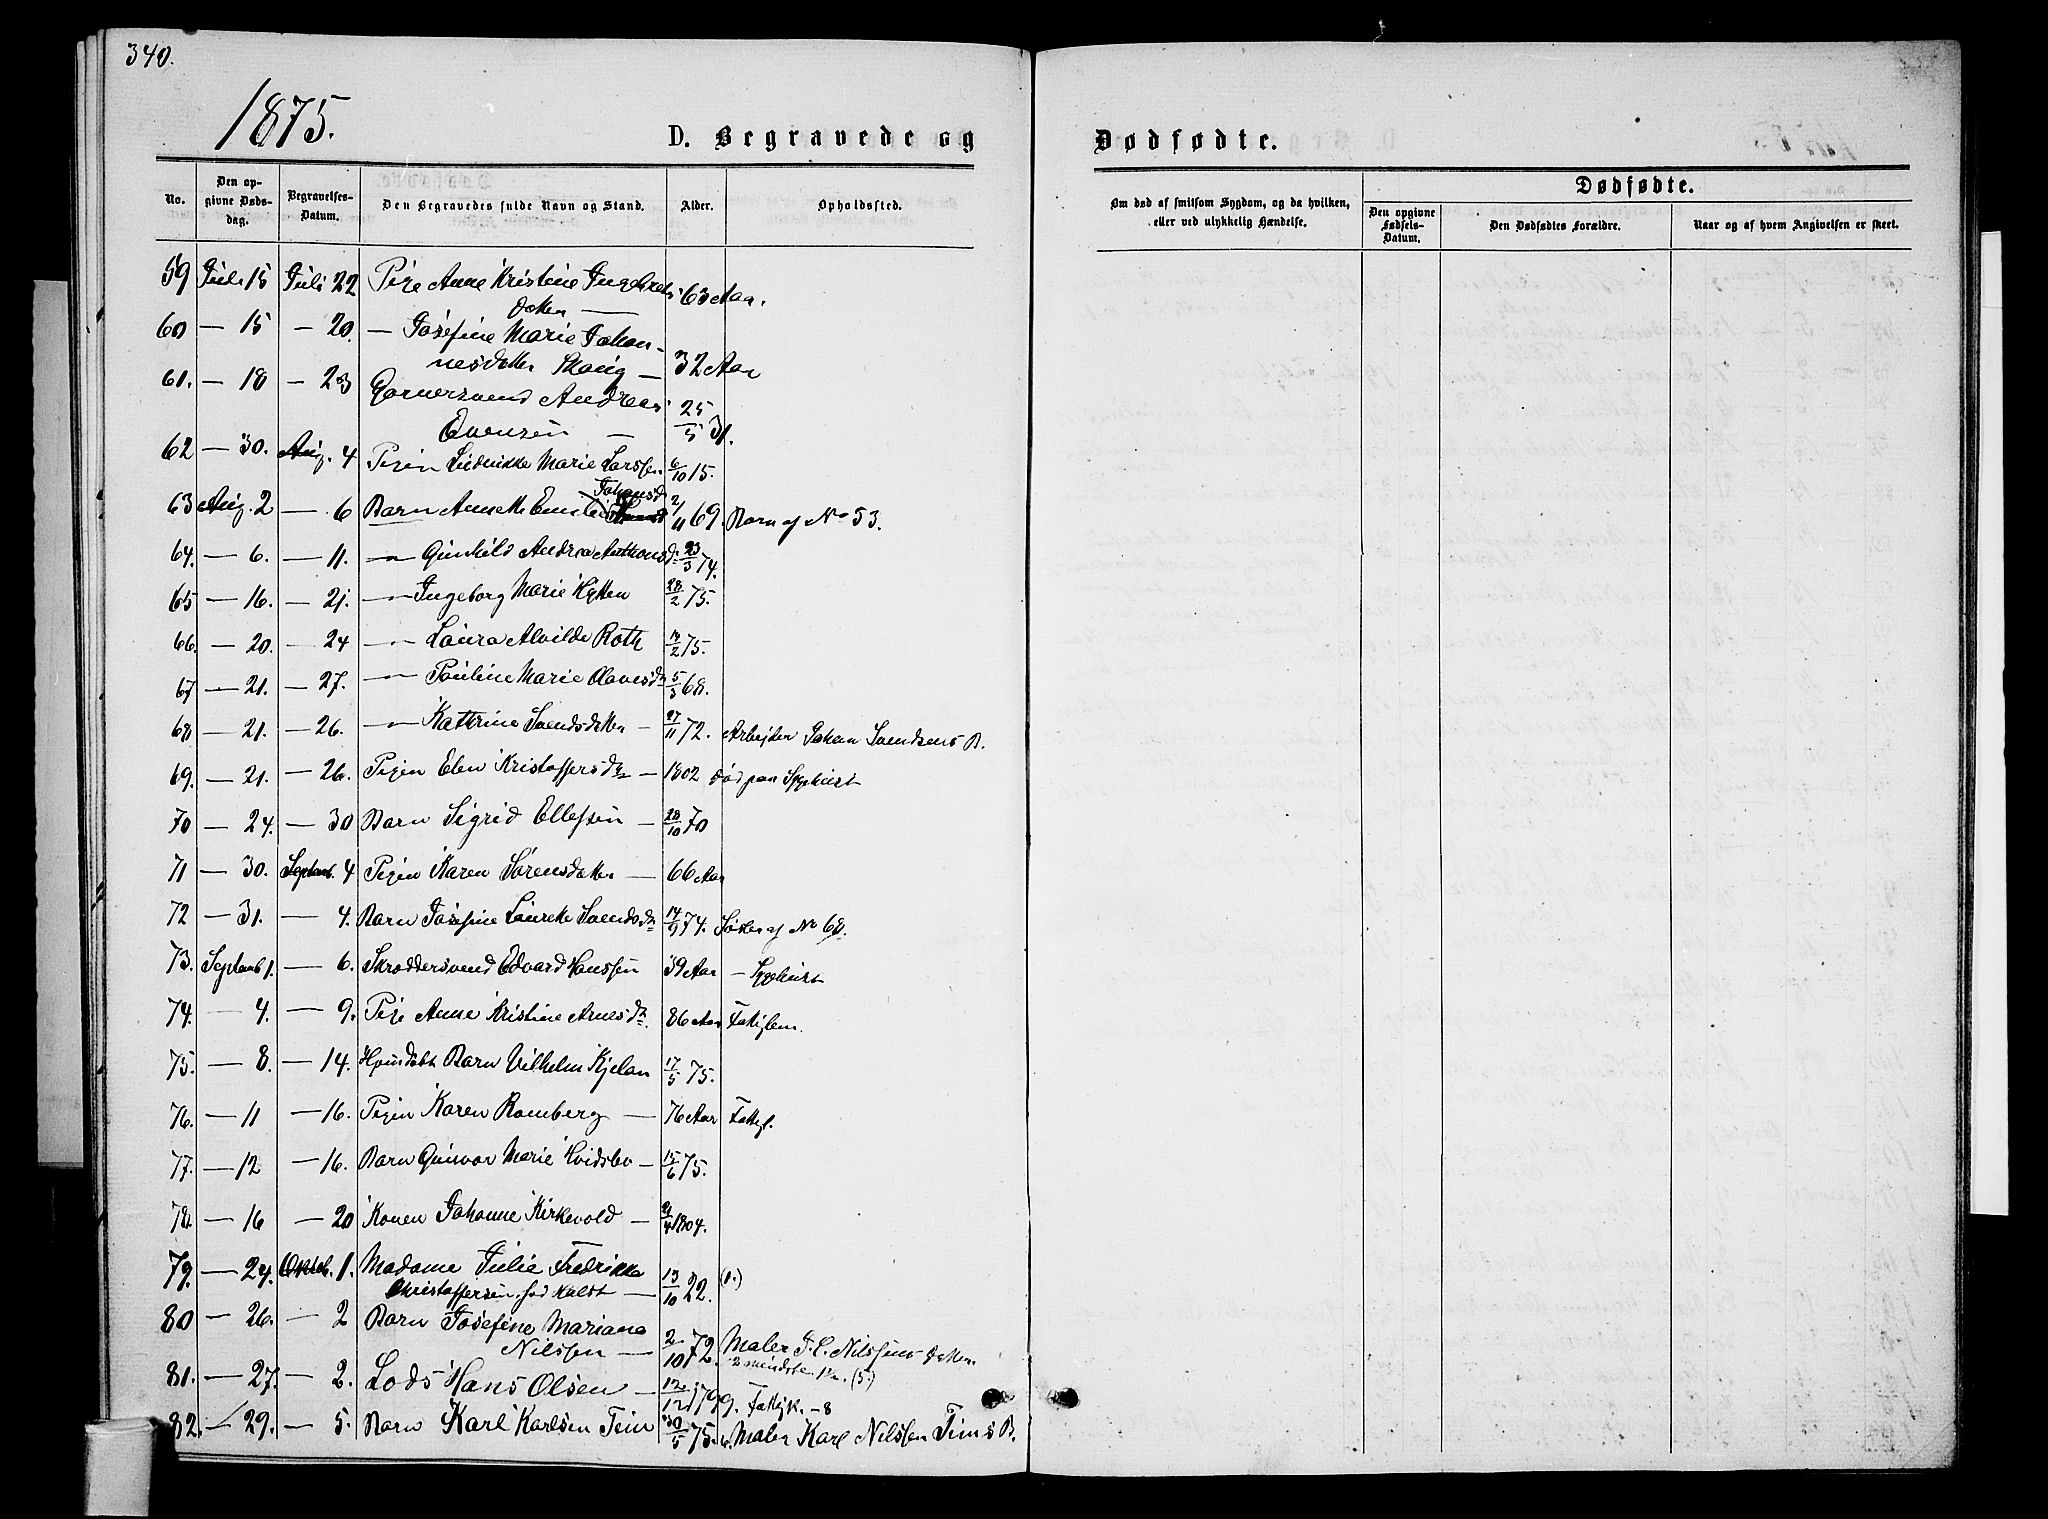 340.
1875.
D. Begravede og
Dødfødte.
No.
Den op-
givne Døds-
dag.
Begravelses-
Datum.
Den Begravedes fulde Navn og Stand.
Alder.
Opholdssted.
Om død af smitsom Sygdom, og da hvilken,
eller ved ulykkelig Hændelse.
Dødfødte.
Den opgivne
Fødsels-
Datum.
Den Dødfødtes Forældre.
Naar og af hvem Angivelsen er skeet.
59 Juli 15 Juli 22 Pige Anne Kristine Ingebrets- 63 Aar.
datter —
60 — 15 — 20. — Josefine Marie Johan-
nesdatter Skaug — 32 Aar
61. — 18 — 23 Garversvend Andreas 25/5 31.
Evensen —
62 — 30. Aug. 4 Pigen Fredrikke Marie Larssen 6/10 15.
63 Aug. 2 — 6 Barn Annette Emilie Johansd 2/11 69. Barn af No 53.
64. — 6. — 11. — Gunhild Andrea Antonsd. 23/3 74.
65 — 16. — 21. — Ingeborg Marie Hytten 28/2 75.
66. — 20. — 24 — Laura Alvilde Roth 14/2 75.
67 — 21. — 27. — Pauline Marie Olavesdr 5/3 68.
68 — 21. — 26. — Kathrine Svendsdatter — 27/11 72. Arbejder Johan Svendsens B.
69. — 21. — 26. Pigen Elen Kristoffersdr — 1802 død paa Sygehuset
70 — 24. — 30 Barn Sigrid Ellefsen — 28/10 70
71 — 30. Septemb. 4 Pigen Karen Sørensdatter — 66 Aar
72 — 31. — 4. Barn Josefine Laurette Svendsdr 14/9 74. Søster af No 68.
73. Septemb 1. — 6. Skræddersvend Edvard Hanssen 39 Aar — Sygehuset
74. — 4. — 9. Pige Anne Kristine Arnesdr. 86 Aar Fattiglem.
75. — 8. — 14. Hjemdøbt Barn Vilhelm Kjelan 17/5 75.
76. — 11 — 16. Pigen Karen Romberg — 76 Aar Fattigl.
77. — 12 — 16. Barn Gunvor Marie Hvidsten — 15/6 75.
78. — 16 — 20 Konen Johanne Kirkevold — 4 1804.
79. — 24. Oktob. 1. Madame Julie Fredrikke
Christoffersen, fød Kaldt — 13/10 22. (1.)
80 — 26. — 2 Barn Josefine Mariane
Nilssen — 2/10 72. Maler J. C. Nilssens datter.
2 mindste (5.)
81. — 27. — 2. Lods Hans Olsen — 12/12 1799. Fattigk. — 8
82. — 29. — 5. Barn Karl Karlsen Tein 30/5 75. Maler Karl Nilssen Teins B.